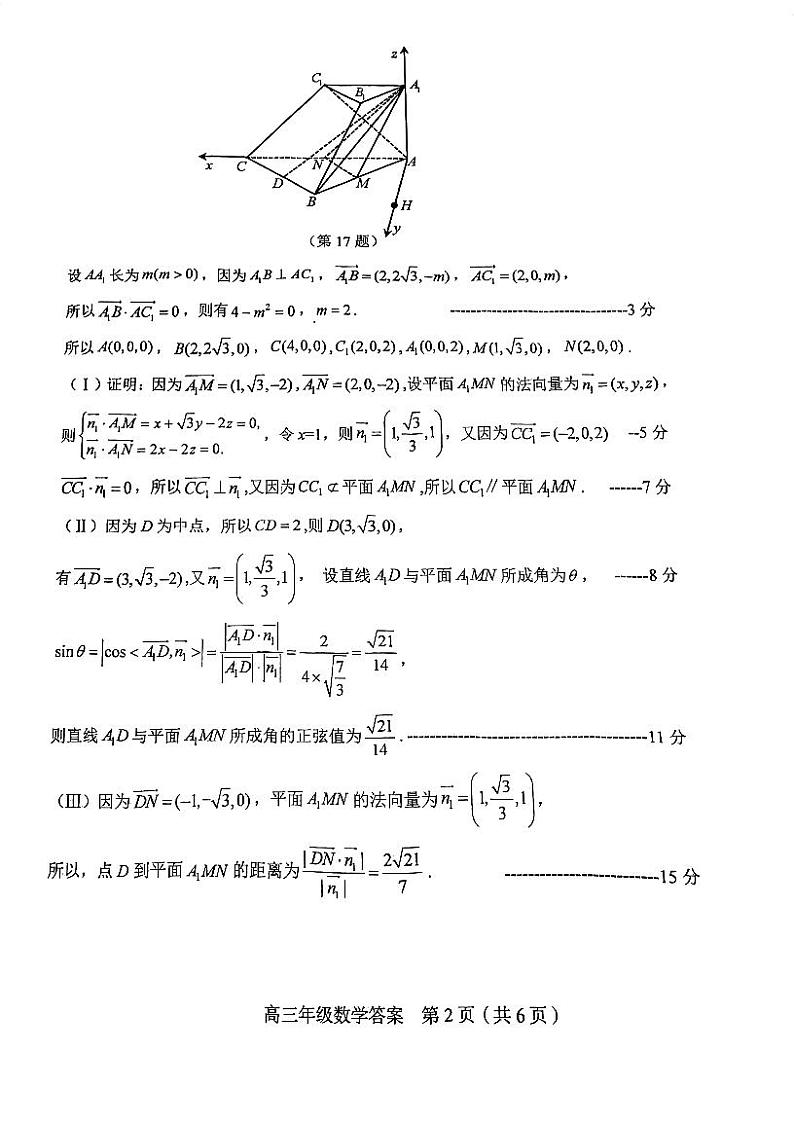 z
C₁
B₁
A₁
x
C
N
A
D
M
B
H
y
(第 17 题)
设 AA₁ 长为 m(m > 0)，因为 A₁B ⊥ AC₁，$\overrightarrow{A_1B}=(2,2\sqrt{3},-m)$，$\overrightarrow{AC_1}=(2,0,m)$，
所以 $\overrightarrow{A_1B}\cdot\overrightarrow{AC_1}=0$，则有 $4-m^2=0$，$m=2$. ---------------------------------3 分
所以 A(0,0,0)，$B(2,2\sqrt{3},0)$，C(4,0,0), C₁(2,0,2), A₁(0,0,2), $M(1,\sqrt{3},0)$，N(2,0,0).
(Ⅰ) 证明: 因为 $\overrightarrow{A_1M}=(1,\sqrt{3},-2)$, $\overrightarrow{A_1N}=(2,0,-2)$, 设平面 A₁MN 的法向量为 $\overrightarrow{n_1}=(x,y,z)$，
则 $\begin{cases}\overrightarrow{n_1}\cdot\overrightarrow{A_1M}=x+\sqrt{3}y-2z=0,\\ \overrightarrow{n_1}\cdot\overrightarrow{A_1N}=2x-2z=0.\end{cases}$，令 x=1，则 $\overrightarrow{n_1}=\left(1,\frac{\sqrt{3}}{3},1\right)$，又因为 $\overrightarrow{CC_1}=(-2,0,2)$ --5 分
$\overrightarrow{CC_1}\cdot\overrightarrow{n_1}=0$，所以 $\overrightarrow{CC_1}\perp\overrightarrow{n_1}$, 又因为 CC₁ ⊄ 平面 A₁MN, 所以 CC₁ // 平面 A₁MN. ------7 分
(Ⅱ) 因为 D 为中点，所以 CD = 2, 则 $D(3,\sqrt{3},0)$，
有 $\overrightarrow{A_1D}=(3,\sqrt{3},-2)$, 又 $\overrightarrow{n_1}=\left(1,\frac{\sqrt{3}}{3},1\right)$， 设直线 A₁D 与平面 A₁MN 所成角为 θ， ------8 分
$\sin\theta=\left|\cos<\overrightarrow{A_1D},\overrightarrow{n_1}>\right|=\frac{\left|\overrightarrow{A_1D}\cdot\overrightarrow{n_1}\right|}{\left|\overrightarrow{A_1D}\right|\cdot\left|\overrightarrow{n_1}\right|}=\frac{2}{4\times\sqrt{\frac{7}{3}}}=\frac{\sqrt{21}}{14}$，
则直线 A₁D 与平面 A₁MN 所成角的正弦值为 $\frac{\sqrt{21}}{14}$. -----------------------------------------11 分
(Ⅲ) 因为 $\overrightarrow{DN}=(-1,-\sqrt{3},0)$，平面 A₁MN 的法向量为 $\overrightarrow{n_1}=\left(1,\frac{\sqrt{3}}{3},1\right)$，
所以，点 D 到平面 A₁MN 的距离为 $\frac{|\overrightarrow{DN}\cdot\overrightarrow{n_1}|}{|\overrightarrow{n_1}|}=\frac{2\sqrt{21}}{7}$. ---------------------------15 分
高三年级数学答案 第 2 页 (共 6 页)